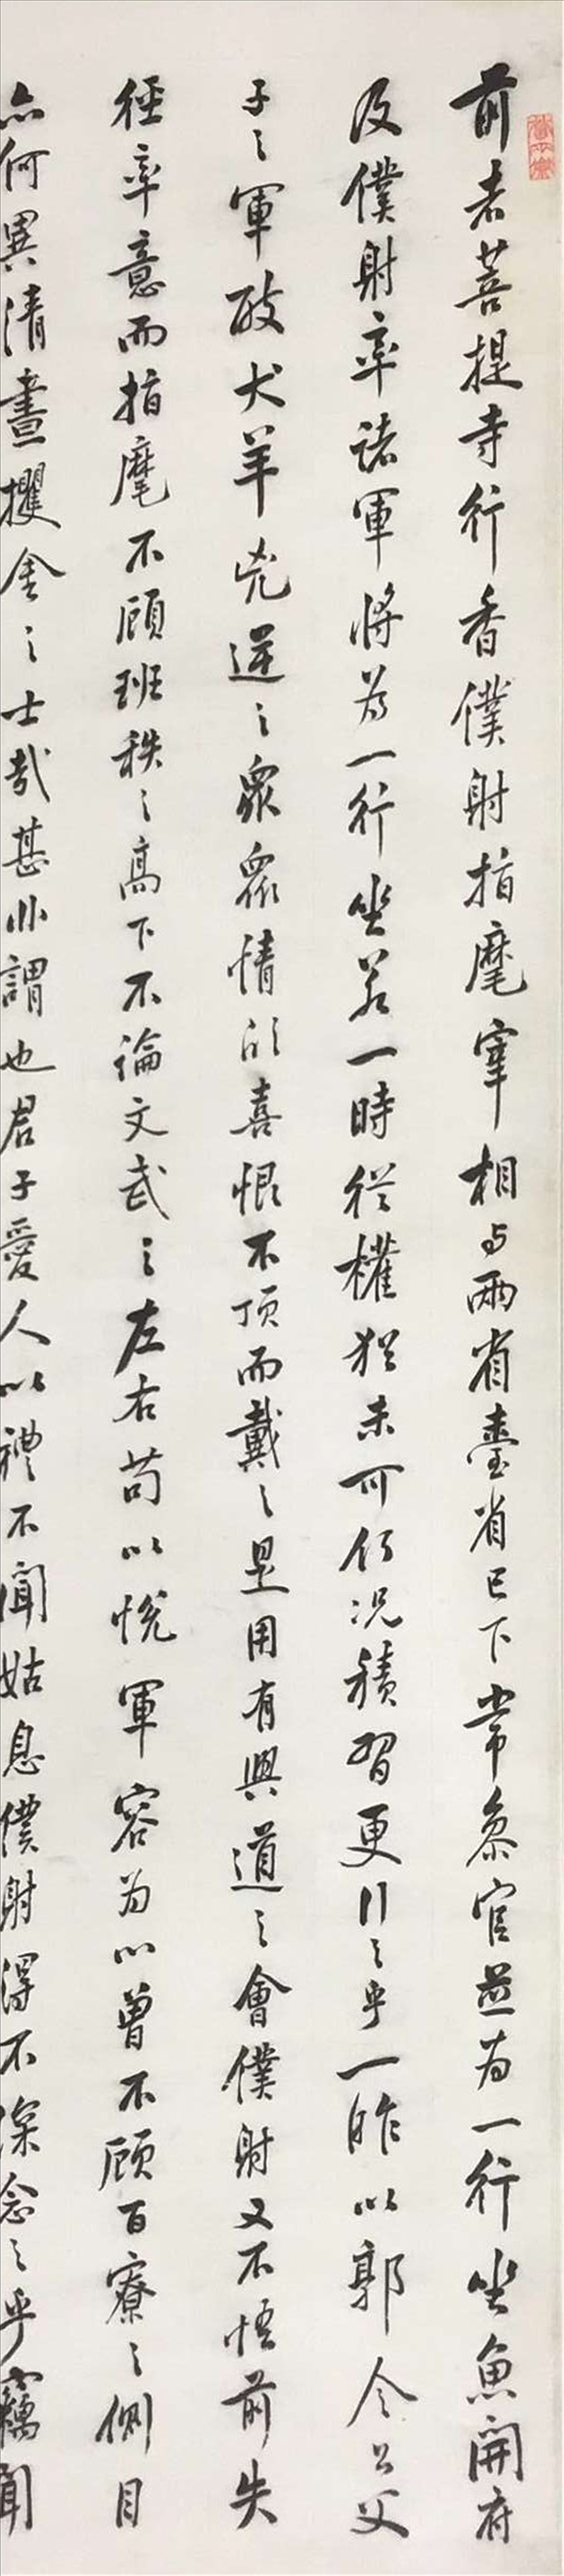 前者菩提寺行香僕射指麾宰相与兩省臺省已下常參官並为一行坐魚開府
及僕射率諸軍將为一行坐若一時從權猶未可何況積習更行之乎一昨以郭令公父
子之軍破犬羊兇逆之眾眾情欣喜恨不頂而戴之是用有興道之會僕射又不悟前失
徑率意而指麾不顧班秩之高下不論文武之左右苟以悅軍容为心曾不顧百寮之側目
亦何異清晝攫金之士哉甚非謂也君子愛人以禮不聞姑息僕射得不深念之乎竊聞